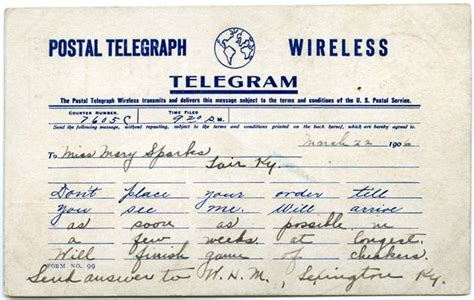 POSTAL TELEGRAPH WIRELESS
TELEGRAM
The Postal Telegraph Wireless transmits and delivers this message subject to the terms and conditions of the U. S. Postal Service.
COUNTER NUMBER. TIME FILED
7605C 920 P.M.
Send the following message, without repeating, subject to the terms and conditions printed on the back hereof, which are hereby agreed to.
March 22 1906
To Miss Mary Sparks
Fair Ky.
Don't place your order till
you see me. Will arrive
as soon as possible in
a few weeks at longest.
Will finish game of checkers.
FORM NO. 99
Send answer to W.N.M., Lexington Ky.